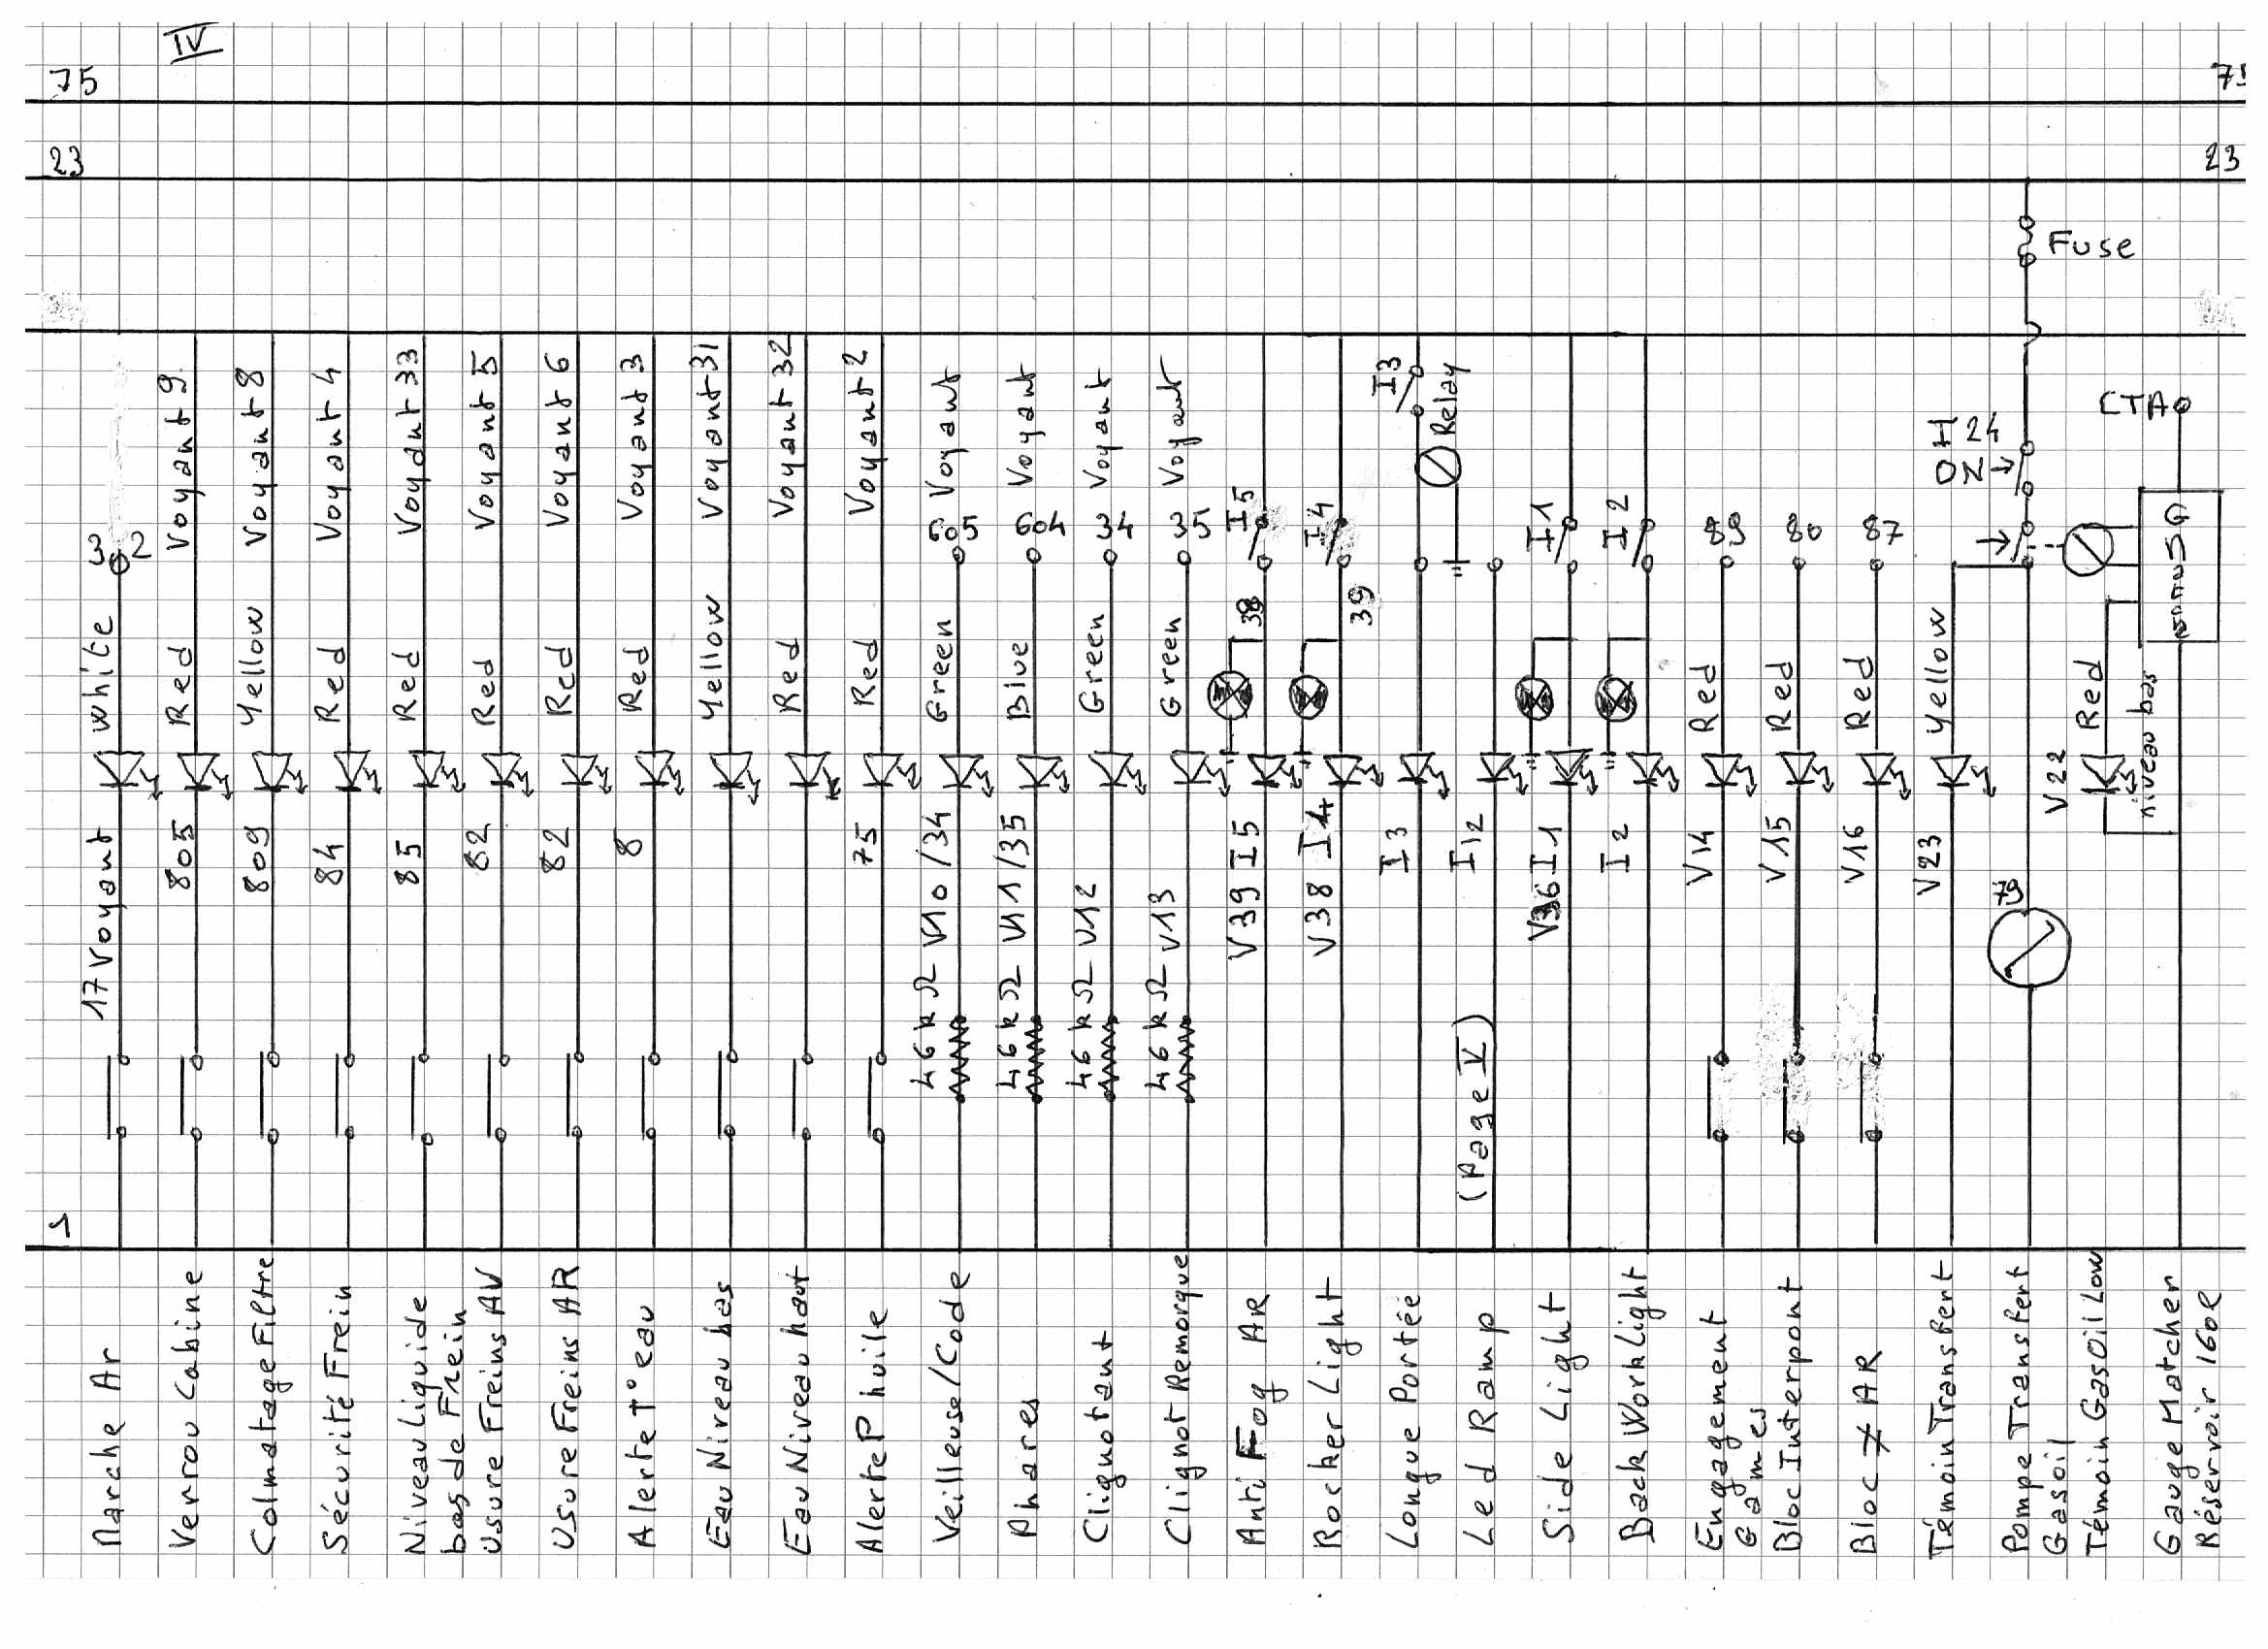 IV
75
75
23
23
Fuse
32
Voyant 9
Voyant 8
Voyant 4
Voyant 33
Voyant 5
Voyant 6
Voyant 3
Voyant 31
Voyant 32
Voyant 2
605 Voyant
604 Voyant
34 Voyant
35 Voyant
I5
I4
I3
Relay
I1
I2
89
80
87
H24
ON
CTA
38
39
white
Red
Yellow
Red
Red
Red
Red
Red
Yellow
Red
Red
Green
Blue
Green
Green
Red
Red
Red
Yellow
Red
niveau bas
17 Voyant
805
809
84
85
82
82
8
75
46kΩ V10/34
46kΩ V11/35
46kΩ V12
46kΩ V13
V39 I5
V38 I4
I3
I12
V36 I1
I2
V14
V15
V16
V23
V22
(Page V)
1
Marche Ar
Verrou Cabine
Colmatage Filtre
Sécurité Frein
Niveau Liquide
bas de Frein
Usure Freins AV
Usure Freins AR
Alerte T° eau
Eau Niveau bas
Eau Niveau haut
Alerte P huile
Veilleuse/Code
Phares
Clignotant
Clignot Remorque
Anti Fog AR
Rocker Light
Longue Portée
Led Ramp
Side Light
Back WorkLight
Engagement
Games
Bloc Interpont
Bloc ≠ AR
Témoin Transfert
Pompe Transfert
Gasoil
Témoin Gasoil Low
Gauge Matcher
Réservoir 160l